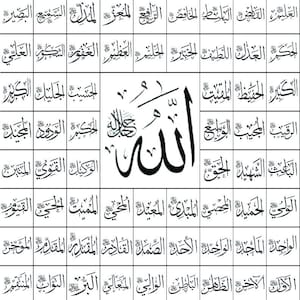 العليم القابض الباسط الخافض الرافع المعز المذل السميع البصير
الحكم العدل اللطيف الخبير الحليم العظيم الغفور الشكور العلي
الكبير الحفيظ المقيت الحسيب الجليل الكريم
الله جل جلاله
الرقيب المجيب الواسع الحكيم الودود المجيد
الباعث الشهيد الحق الوكيل القوي المتين
الولي الحميد المحصي المبدئ المعيد المحيي المميت الحي القيوم
الواجد الماجد الواحد الأحد الصمد القادر المقتدر المقدم المؤخر
الأول الآخر الظاهر الباطن الوالي المتعالي البر التواب المنتقم